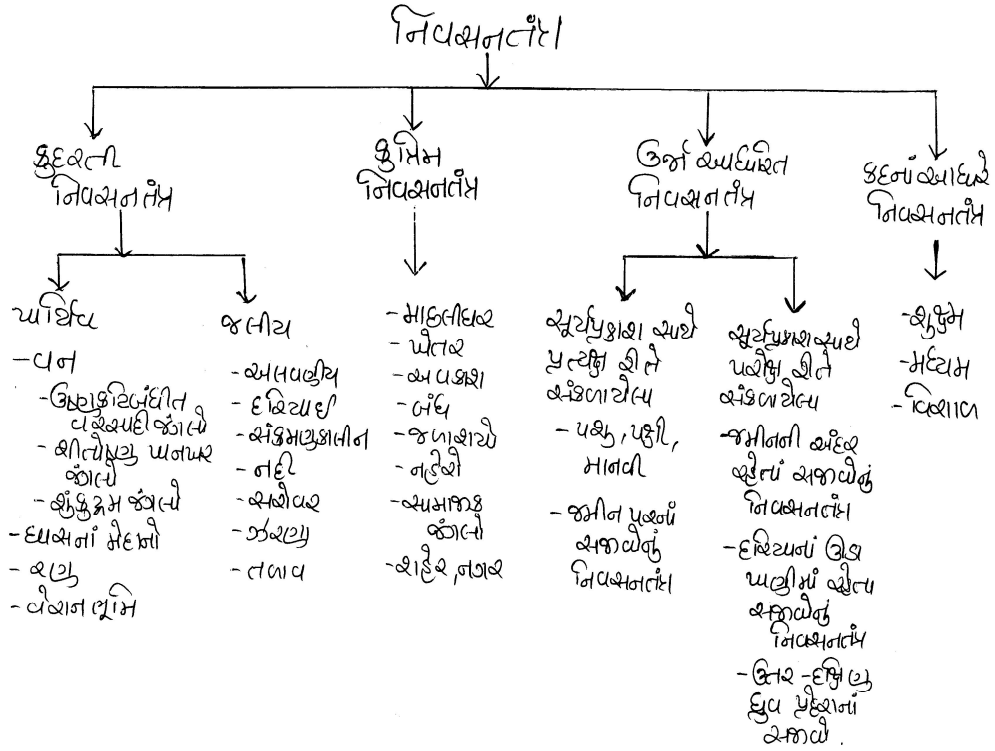 નિવસનતંત્ર
કુદરતી
નિવસનતંત્ર
પાર્થિવ
- વન
- ઉષ્ણકટિબંધીત
વરસાદી જંગલો
- શીતોષ્ણ પાનખર
જંગલો
- શંકુદ્રુમ જંગલો
- ઘાસનાં મેદાનો
- રણ
- વેરાન ભૂમિ
જલીય
- અલવણીય
- દરિયાઈ
- સંક્રમણકાલીન
- નદી
- સરોવર
- ઝરણુ
- તળાવ
કૃત્રિમ
નિવસનતંત્ર
- માછલીઘર
- ખેતર
- અવકાશ
- બંધ
- જળાશયો
- નહેરો
- સામાજીક
જંગલો
- શહેર, નગર
ઉર્જા આધારિત
નિવસનતંત્ર
સૂર્યપ્રકાશ સાથે
પ્રત્યક્ષ રીતે
સંકળાયેલા
- પશુ, પક્ષી,
માનવી
- જમીન પરનાં
સજીવોનું
નિવસનતંત્ર
સૂર્યપ્રકાશ સાથે
પરોક્ષ રીતે
સંકળાયેલા
- જમીનની અંદર
રહેતાં સજીવોનું
નિવસનતંત્ર
- દરિયાનાં ઊંડા
પાણીમાં રહેતા
સજીવોનું
નિવસનતંત્ર
- ઉતર - દક્ષિણ
ધ્રુવ પ્રદેશનાં
સજીવો.
કદનાં આધારે
નિવસનતંત્ર
- સુક્ષ્મ
- મધ્યમ
- વિશાળ